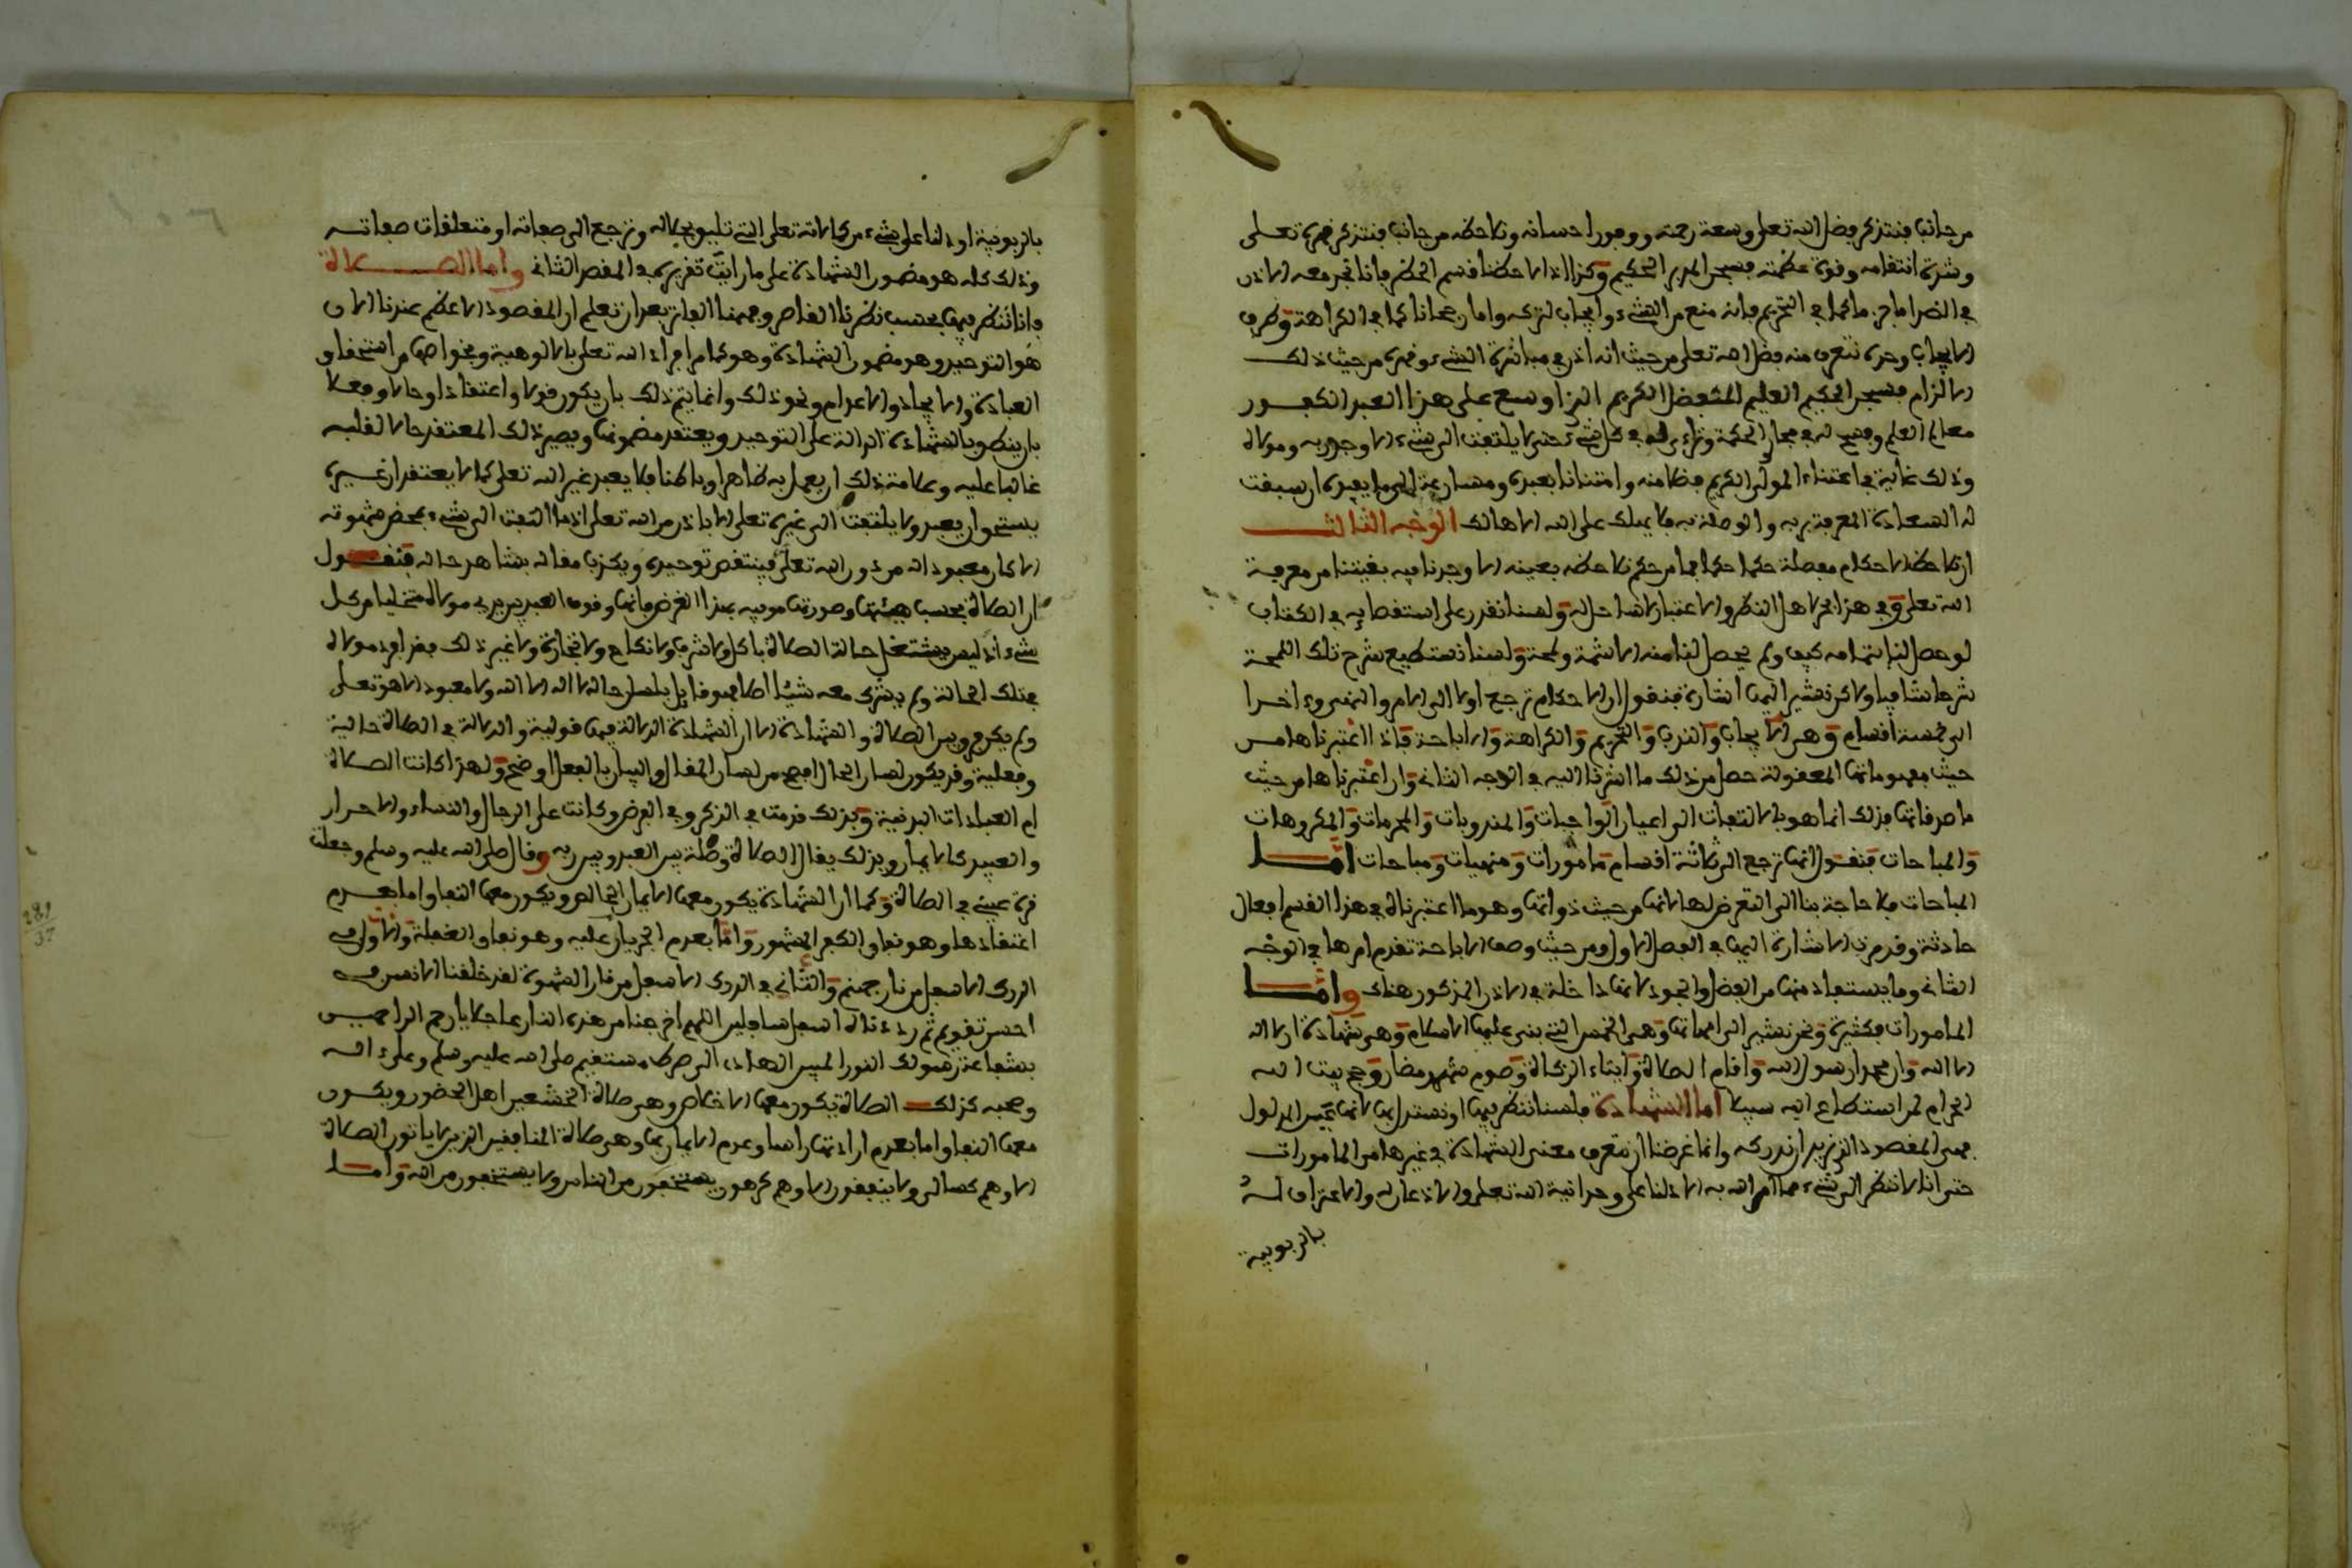 من جانب فنتذكر فضل الله تعلى وسعة رحمته ووفور احسانه ونلاحظه من جانب فنتذكر قهره تعلى
وشدة انتقامه وقوة عظمته فسبحن المدبر الحكيم وكذا اذا لاحظنا قسم الحظر فانا نجد معه الاذن
في الضد اما جزما كما في التحريم فانه منع من الشيء وايجاب لتركه واما رجحانا كما في الكراهة وطرف
الايجاب وحده نتعرف منه فضل الله تعلى من حيث انه اذن في مباشرة الشيء وقهره من حيث ذلك
الالزام فسبحن الحكيم العليم المتفضل الكريم الذي اوسع على هذا العبد الكفور
معالم العلم وفسح له في مجاري الحكمة وتراءى له في كل شيء حتى لا يلتفت الى شيء الا وجد ربه ومولاه
وذلك غاية في اعتناء المولى الكريم فضلا منه وامتنانا بعبده ومسارعة الى ما يفيده ان سبقت
له السعادة المعرفة به والوصلة به فلا يهلك على الله الا هالك الوجه الثالث
ان نلاحظ الاحكام مفصلة حكما حكما فما من حكم نلاحظه بعينه الا وجدنا فيه بغيتنا من معرفة
الله تعلى وفي هذا مجرا هل النظر والاعتبار لا ساحل له ولسنا نقدر على استقصايه في الكتاب
لو حصل لنا بتمامه كيف ولم يحصل لنا منه الا شمة ولمحة ولسنا نستطيع شرح تلك اللمحة
شرحا شافيا ولاكن نشير اليها اشارة فنقول ان الاحكام ترجع اولا الى الامر والنهي وءاخرا
الى خمسة اقسام وهي الايجاب والندب والتحريم والكراهة والاباحة فاذا اعتبرناها من
حيث مفهوماتها المعقولة حصل من ذلك ما اشرنا اليه في الوجه الثاني وان اعتبرناها من حيث
ما صدقاتها فذلك انما هو بالالتفات الى اعيان الواجبات والمندوبات والمحرمات والمكروهات
والمباحات فنقول انها ترجع الى ثلاثة اقسام مامورات ومنهيات ومباحات امّا
المباحات فلا حاجة بنا الى التعرض لها لانها من حيث ذواتها وهو ما اعتبرناه في هذا القسم افعال
حادثة وقد مرت الاشارة اليها في الفصل الاول ومن حيث وصف الاباحة تقدم امرها في الوجه
الثاني وما يستفاد منها من الفضل والجود لانها داخلة في الاذن المذكور هناك وامّا
المامورات فكثيرة ونحن نشير الى امهاتها وهي الخمس التي بني عليها الاسلام وهي شهادة ان لا اله
الا الله وان محمدا رسول الله واقام الصلاة وايتاء الزكاة وصوم شهر رمضان وحج بيت الله
الحرام لمن استطاع اليه سبيلا اما الشهادة فلسنا ننظر فيها او نستدل بها لانها عين المدلول
فهي المقصود الذي نريد ان ندركه وانما غرضنا ان نتعرف معنى الشهادة في غيرها من المامورات
حتى انا لا ننظر الى شيء مما امر الله به الا دلنا على وحدانية الله تعلى والاذعان له والاعتراف له
بالربوبية
بالربوبية او دلنا على شيء من كمالاته تعلى التي تليق بجلاله وترجع الى صفاته او متعلقات صفاته
وذلك كله هو مضمون الشهادة على ما رايت تقريره في المقصد الثاني واما الصلاة
فانا ننظر فيها بحسب نظرنا القاصر وفهمنا الفاتر بعد ان تعلم ان المقصود الاعظم عندنا الان
هو التوحيد وهو مضمون الشهادة وهو كما مر افراد الله تعلى بالالوهية وبخواصها من استحقاق
العبادة والايجاد والاعدام ونحو ذلك وانما يتم ذلك بان يكون قولا واعتقادا وحالا وفعلا
بان ينطق بالشهادة الدالة على التوحيد ويعتقد مضمونها ويصير ذلك المعتقد حالا لقلبه
غالبا عليه وعلامة ذلك ان يعمل به ظاهرا وباطنا فلا يعبد غير الله تعلى كما لا يعتقد ان غيره
يستحق ان يعبد ولا يلتفت الى غيره تعلى الا باذن من الله تعلى اذ ما التفت الى شيء بمحض شهوته
الا كان معبودا له من دون الله تعلى فينتقض توحيده ويكذب مقاله بشاهد حاله فنقول
ان الصلاة بحسب هيئتها وصورتها موفية بهذا الغرض فانها وقوف العبد بين يدي مولاه متخليا من كل
شيء اذ ليس يشتغل حالة الصلاة باكل ولا شرب ولا نكاح ولا تجارة ولا غير ذلك فقد افرد مولاه
بتلك الحالة ولم يشرك معه شيئا اصلا فهو قايل بلسان حاله لا اله الا الله ولا معبود الا هو تعلى
ولم يكن فرق بين الصلاة والشهادة الا ان الشهادة الدلالة فيها قولية والدلالة في الصلاة حالية
وفعلية وقد يكون لسان الحال افصح من لسان المقال والبيان بالفعل اوضح ولهذا كانت الصلاة
ام العبادات البدنية وبذلك قدمت في الذكر وفي الفرض وكانت على الرجال والنساء والاحرار
والعبيد كالايمان وبذلك يقال الصلاة وصلة بين العبد وبين ربه وقال صلى الله عليه وسلم وجعلت
قرة عيني في الصلاة وكما ان الشهادة يكون معها الايمان الخالص ويكون معها النفاق اما بعدم
اعتقادها وهو نفاق الكفر المشهور وامّا بعدم الجريان عليه وهو نفاق الغفلة والاول في
الدرك الاسفل من نار جهنم والثاني في الدرك الاسفل من نار الشهوة لقد خلقنا الانسن في
احسن تقويم ثم رددناه اسفل سافلين اللهم اخرجنا من هذه النار عاجلا يا ارحم الراحمين
بشفاعة رسولك النور المبين الهادي الى صرط مستقيم صلى الله عليه وسلم وعلى ءاله
وصحبه كذلك الصلاة يكون معها الاخلاص وهي صلاة الخشعين اهل الحضور ويكون
معها النفاق اما بعدم ارادتها راسا وعدم الايمان بها وهي صلاة المنافقين الذين لا ياتون الصلاة
الا وهم كسالى ولا ينفقون الا وهم كرهون يستخفون من الناس ولا يستخفون من الله وامّا